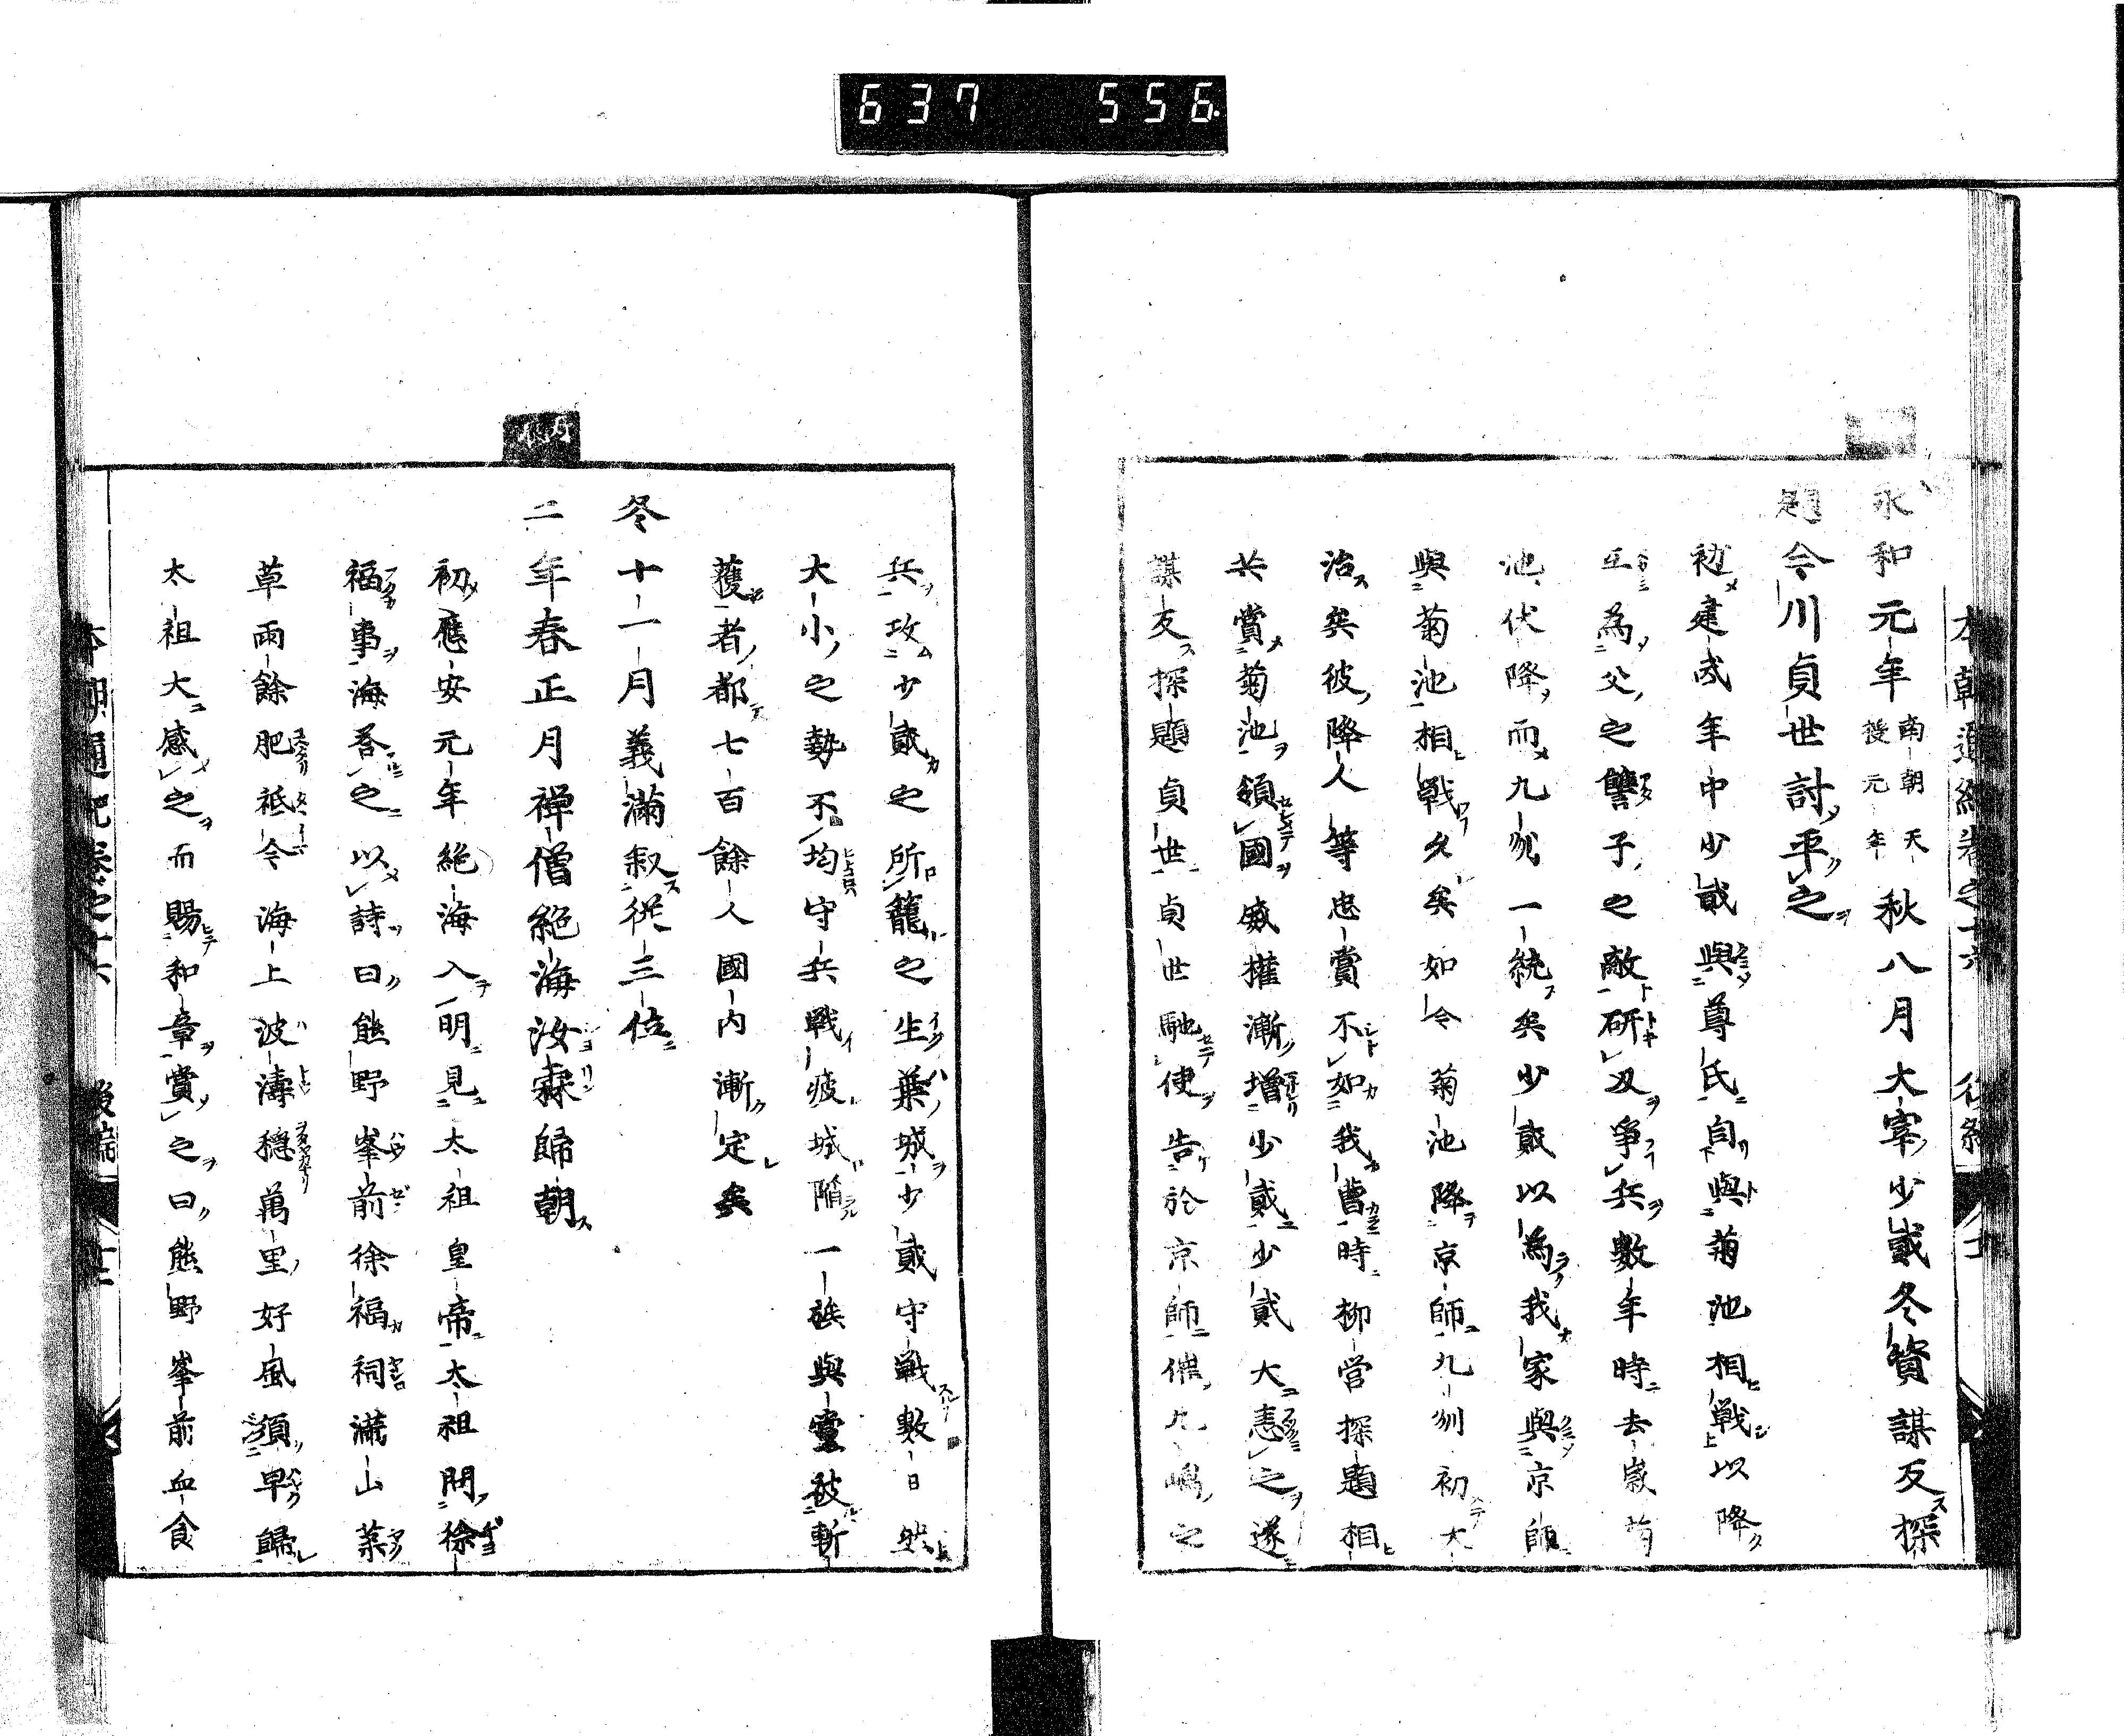 637 556
本朝通紀卷之十六 後編
永和元年南朝天授元年秋八月大宰少貳冬資謀反探
題今川貞世討平之
初建武年中少貳與尊氏自與菊池相戰以降
互為父之讐子之敵研刄爭兵數年時去歲菊
池伏降而九刕一統矣少貳以為我家與京師
與菊池相戰久矣如今菊池降京師九刕初大
治矣彼降人等忠賞不如我曹時柳営探題相
共賞菊池領國威權漸增少貳少貳大恚之遂
謀反探題貞世貞世馳使告於京師催九嶋之
兵攻少貳之所籠之生葉城少貳守戰數日然
大小之勢不均守兵戰疲城陥一族與黨被斬
獲者都七百餘人國内漸定矣
冬十一月義滿叙從三位
二年春正月禅僧絶海汝霖歸朝
初應安元年絶海入明見太祖皇帝太祖問徐
福事海荅之以詩曰熊野峯前徐福祠滿山藥
草雨餘肥祇今海上波濤穩萬里好風須早歸
太祖大感之而賜和章賞之曰熊野峯前血食
本朝通紀卷之十六 後編 十二